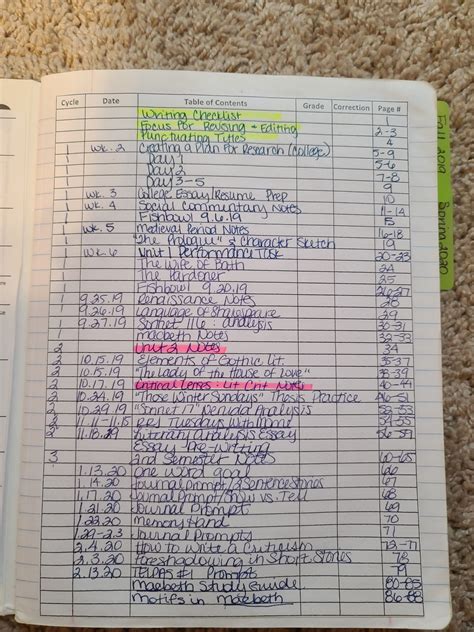 Cycle Date Table of Contents Grade Correction Page #
Writing Checklist 1
Focus for Revising + Editing 2-3
Punctuating Titles 4
1 Wk. 2 Creating a Plan for Research (College) 5-9
1 Day 1 5-6
1 Day 2 7-8
1 Day 3-5 9
1 Wk. 3 College Essay/Resume Prep 10
1 Wk. 4 Social Commentary Notes 11-14
1 Fishbowl 9.6.19 15
1 Wk. 5 Medieval Period Notes 16-18
1 "The Prologue" & Character Sketch 19
1 Wk. 6 Unit 1 Performance Task 20-23
1 The Wife of Bath 24
1 The Pardoner 25
1 Fishbowl 9.20.19 26-27
1 9.25.19 Renaissance Notes 28
1 9.26.19 Language of Shakespeare 29
1 9.27.19 Sonnet 116: analysis 30-31
Macbeth Notes 32-33
2 Unit 2 Notes 34
2 10.15.19 Elements of Gothic Lit. 35-37
2 10.15.19 "The Lady of the House of Love" 38-39
2 10.17.19 Critical Lenses - Lit Crit Notes 40-44
2 10.24.19 "Those Winter Sundays" Thesis Practice
2 10.29.19 "Sonnet 17" Neruda Analysis
2 11.11-11.15 Tuesdays With
2 11.18.19 Literary Analysis Essay
Essay Pre-Writing
3 2nd Semester Notes 60-65
1.13.20 One Word Goal 66
1.14.20 Journal Prompt/3 Sentence Stories 67
1.17.20 Journal Prompt/Show vs. Tell 68
1.21.20 Journal Prompt 69
1.22.20 Memory Hand 70
1.29-2.3 Journal Prompts 71
2.4.20 How to Write a Criticism
2.3.20 Foreshadowing in Short Stories 78
2.13.20 #1 Prompt 79
Macbeth Study Guide 80-85
Motifs in Macbeth 86-88
Fall 2019
Spring 2020